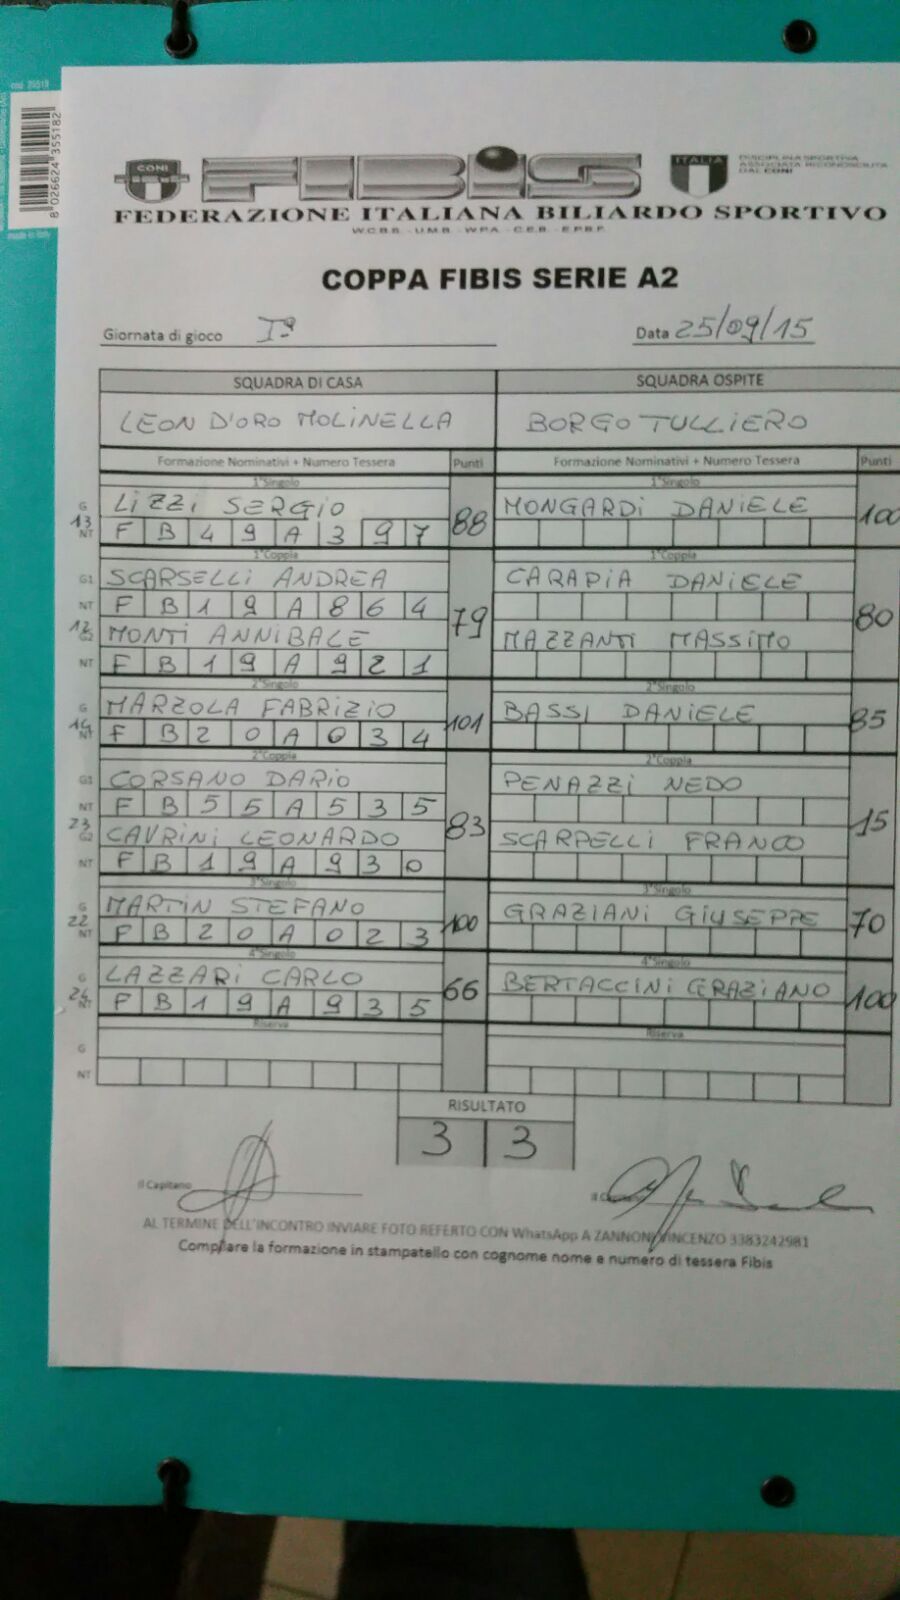 cod. 35518
8 026624 355182
made in Italy
CONI
FIBiS
ITALIA
DISCIPLINA SPORTIVA
ASSOCIATA RICONOSCIUTA
DAL CONI
FEDERAZIONE ITALIANA BILIARDO SPORTIVO
W.C.B.S. - U.M.B. - W.P.A. - C.E.B. - E.P.B.F.
COPPA FIBIS SERIE A2
Giornata di gioco Iª Data 25/09/15
SQUADRA DI CASA SQUADRA OSPITE
LEON D'ORO MOLINELLA BORGO TULLIERO
Formazione Nominativi + Numero Tessera Punti Formazione Nominativi + Numero Tessera Punti
1°Singolo 1°Singolo
G LIZZI SERGIO 88 MONGARDI DANIELE 100
13 NT F B 4 9 A 3 9 7
1°Coppia 1°Coppia
G1 SCARSELLI ANDREA CARAPIA DANIELE
NT F B 1 9 A 8 6 4 79 80
12 G2 MONTI ANNIBALE MAZZANTI MASSIMO
NT F B 1 9 A 9 2 1
2°Singolo 2°Singolo
G MARZOLA FABRIZIO 101 BASSI DANIELE 85
14 NT F B 2 0 A 0 3 4
2°Coppia 2°Coppia
G1 CORSANO DARIO PENAZZI NEDO
NT F B 5 5 A 5 3 5 83 15
23 G2 CAVRINI LEONARDO SCARPELLI FRANCO
NT F B 1 9 A 9 3 0
3°Singolo 3°Singolo
G MARTIN STEFANO 100 GRAZIANI GIUSEPPE 70
22 NT F B 2 0 A 0 2 3
4°Singolo 4°Singolo
G LAZZARI CARLO 66 BERTACCINI GRAZIANO 100
24 NT F B 1 9 A 9 3 5
Riserva Riserva
G
NT
RISULTATO
3 3
Il Capitano Il Capitano
AL TERMINE DELL'INCONTRO INVIARE FOTO REFERTO CON WhatsApp A ZANNONI VINCENZO 3383242981
Compilare la formazione in stampatello con cognome nome e numero di tessera Fibis